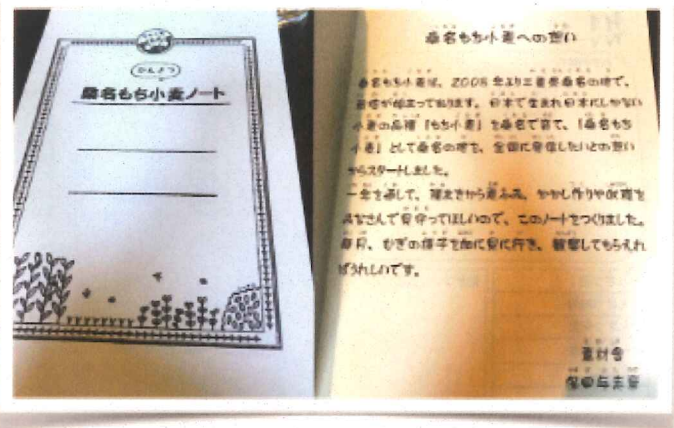 かんさつ
桑名もち小麦ノート
桑名もち小麦への想い
桑名もち小麦は、2008年より三重県桑名の地で、
栽培が始まっております。日本で生まれ日本にしかない
小麦の品種「もち小麦」を桑名で育て、「桑名もち
小麦」として桑名の地を、全国に発信したいとの想い
からスタートしました。
一年を通して、種まきから麦ふみ、かかし作りや収穫を
みなさんで見守ってほしいので、このノートをつくりました。
毎月、むぎの様子を畑に見に行き、観察してもらえれ
ばうれしいです。
素材舎
保田与志彦